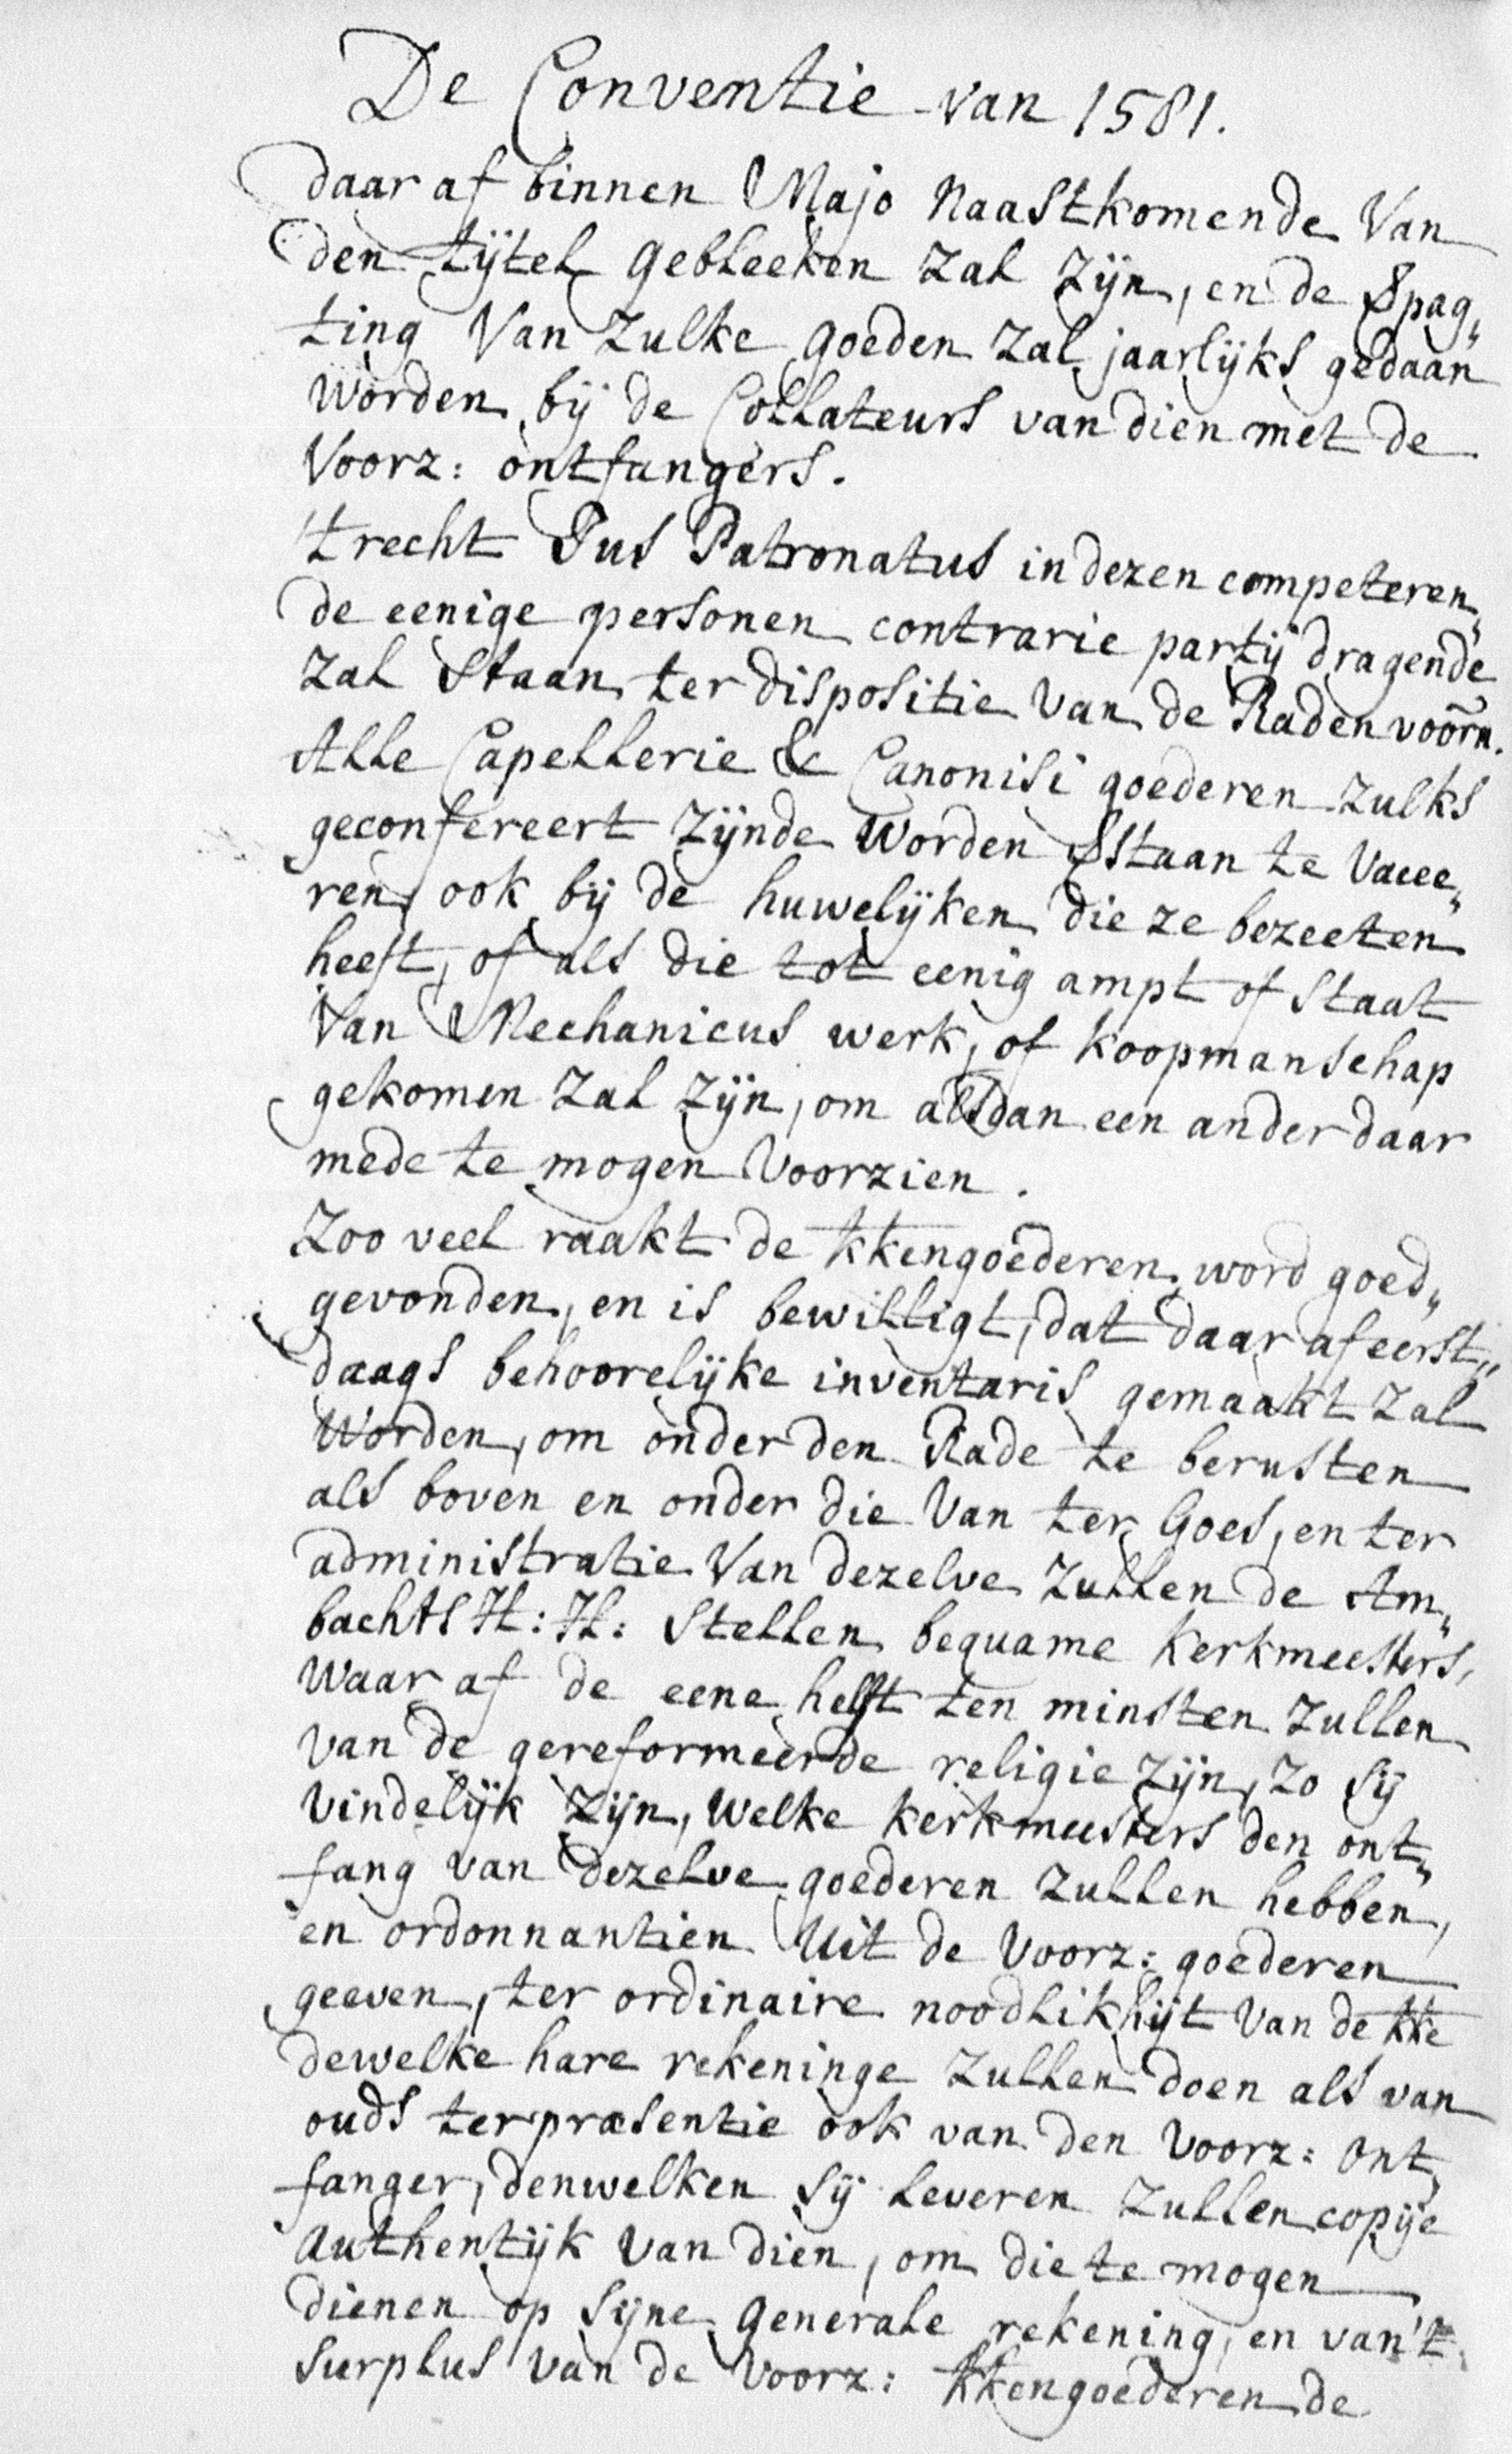 De Conventie van 1581.
daar af binnen Majo naastkomende Van
den tijtel gebleeken zal zijn, en de Spag„
ting Van zulke goeden zal jaarlijks gedaan
worden bij de Collateurs van dien met de
Voorz: ontfangers.
't recht Jus Patronatus in dezen competeren„
de eenige personen contrarie partij dragende
zal staan ter dispositie van de Raden voorn̄.
Alle Capellerie & Canonisi goederen zulks
geconfereert zijnde worden Staan te vacee„
ren, ook bij de huwelijken die ze bezeeten
heeft, of als die tot eenig ampt of staat
Van Mechanicus werk, of koopmanschap
gekomen zal zijn, om alsdan een ander daar
mede te mogen voorzien.
Zoo veel raakt de kkengoederen, word goed„
gevonden, en is bewilligt, dat daar af eerst„
daags behoorelijke inventaris gemaakt zal
worden, om onder den Rade te berusten
als boven en onder die Van ter Goes, en ter
administratie Van dezelve zullen de Am„
bachts H: H: stellen bequame kerkmeesters,
waar af de eene helft ten minsten zullen
van de gereformeerde religie zijn, zo sij
vindelijk zijn, welke kerkmeesters den ont„
fang van dezelve goederen zullen hebben,
en ordonnantien uit de voorz: goederen
geeven, ter ordinaire noodlikhijt van de kke
dewelke hare rekeninge zullen doen als van
ouds ter præsentie ook van den voorz: ont„
fanger, denwelken sij leveren zullen copije
authentijk van dien, om die te mogen
dienen op sijne generale rekening, en van 't
surplus van de voorz: kkengoederen de